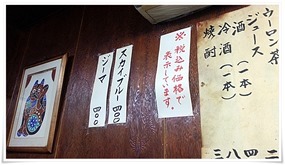 ウーロン茶
ジュース 二
酒(一本) 四
冷酒(一本) 八
焼酎 三
※税込み価格で
表示しています。
スカイブルー 四〇〇
ジーマ 四〇〇